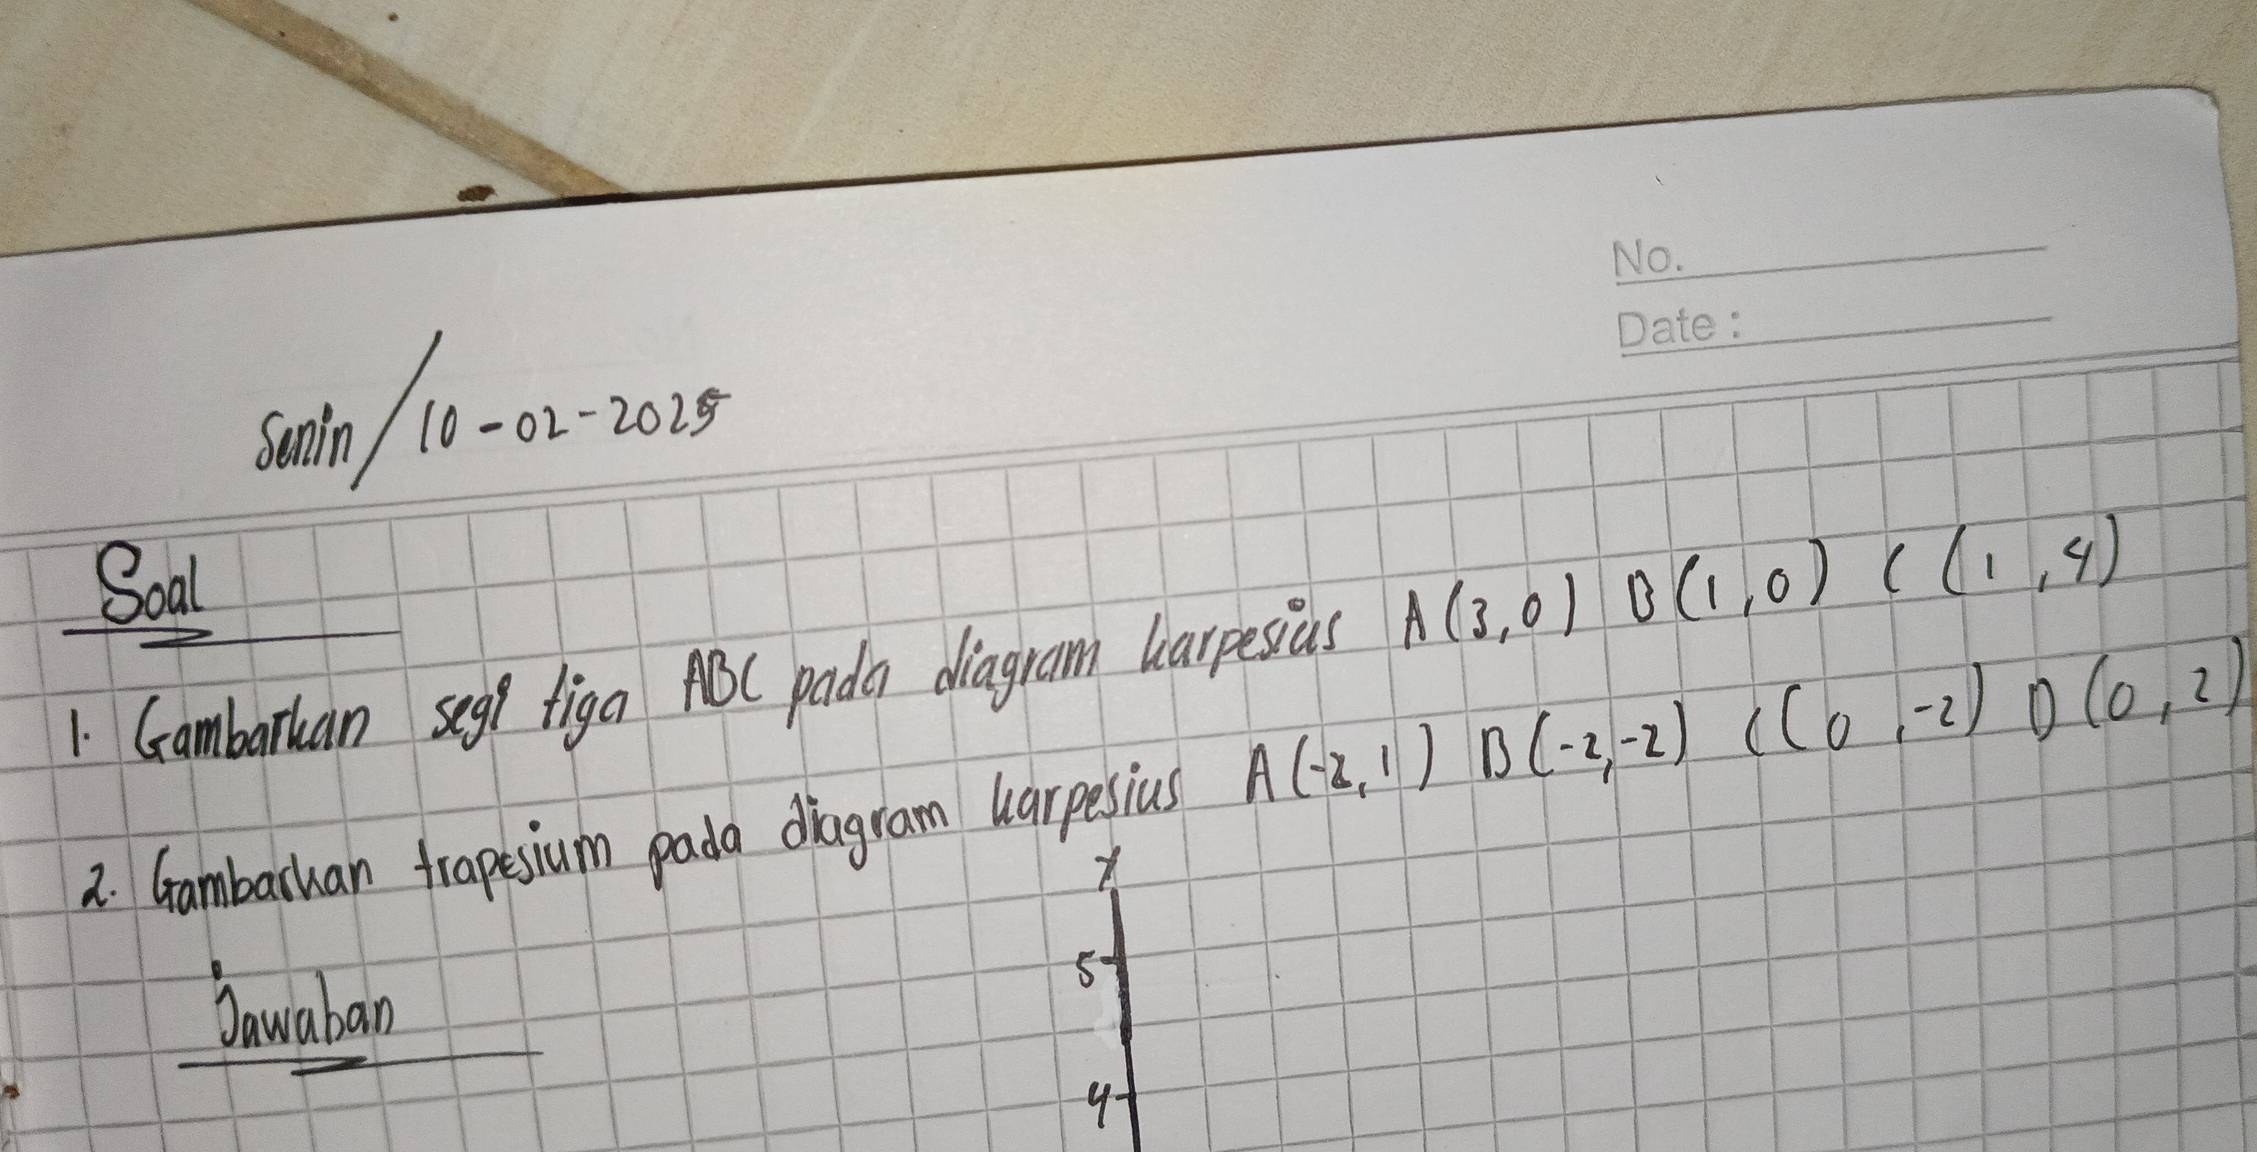 No.
Date :
Senin / 10-02-2025
Soal
1. Gambarkan segi tiga ABC pada diagram karpesius A(3,0) B(1,0) C(1,4)
2. Gambarkan trapesium pada diagram karpesius A(-2,1) B(-2,-2) C(0,-2) D(0,2)
Jawaban
Y
5
4